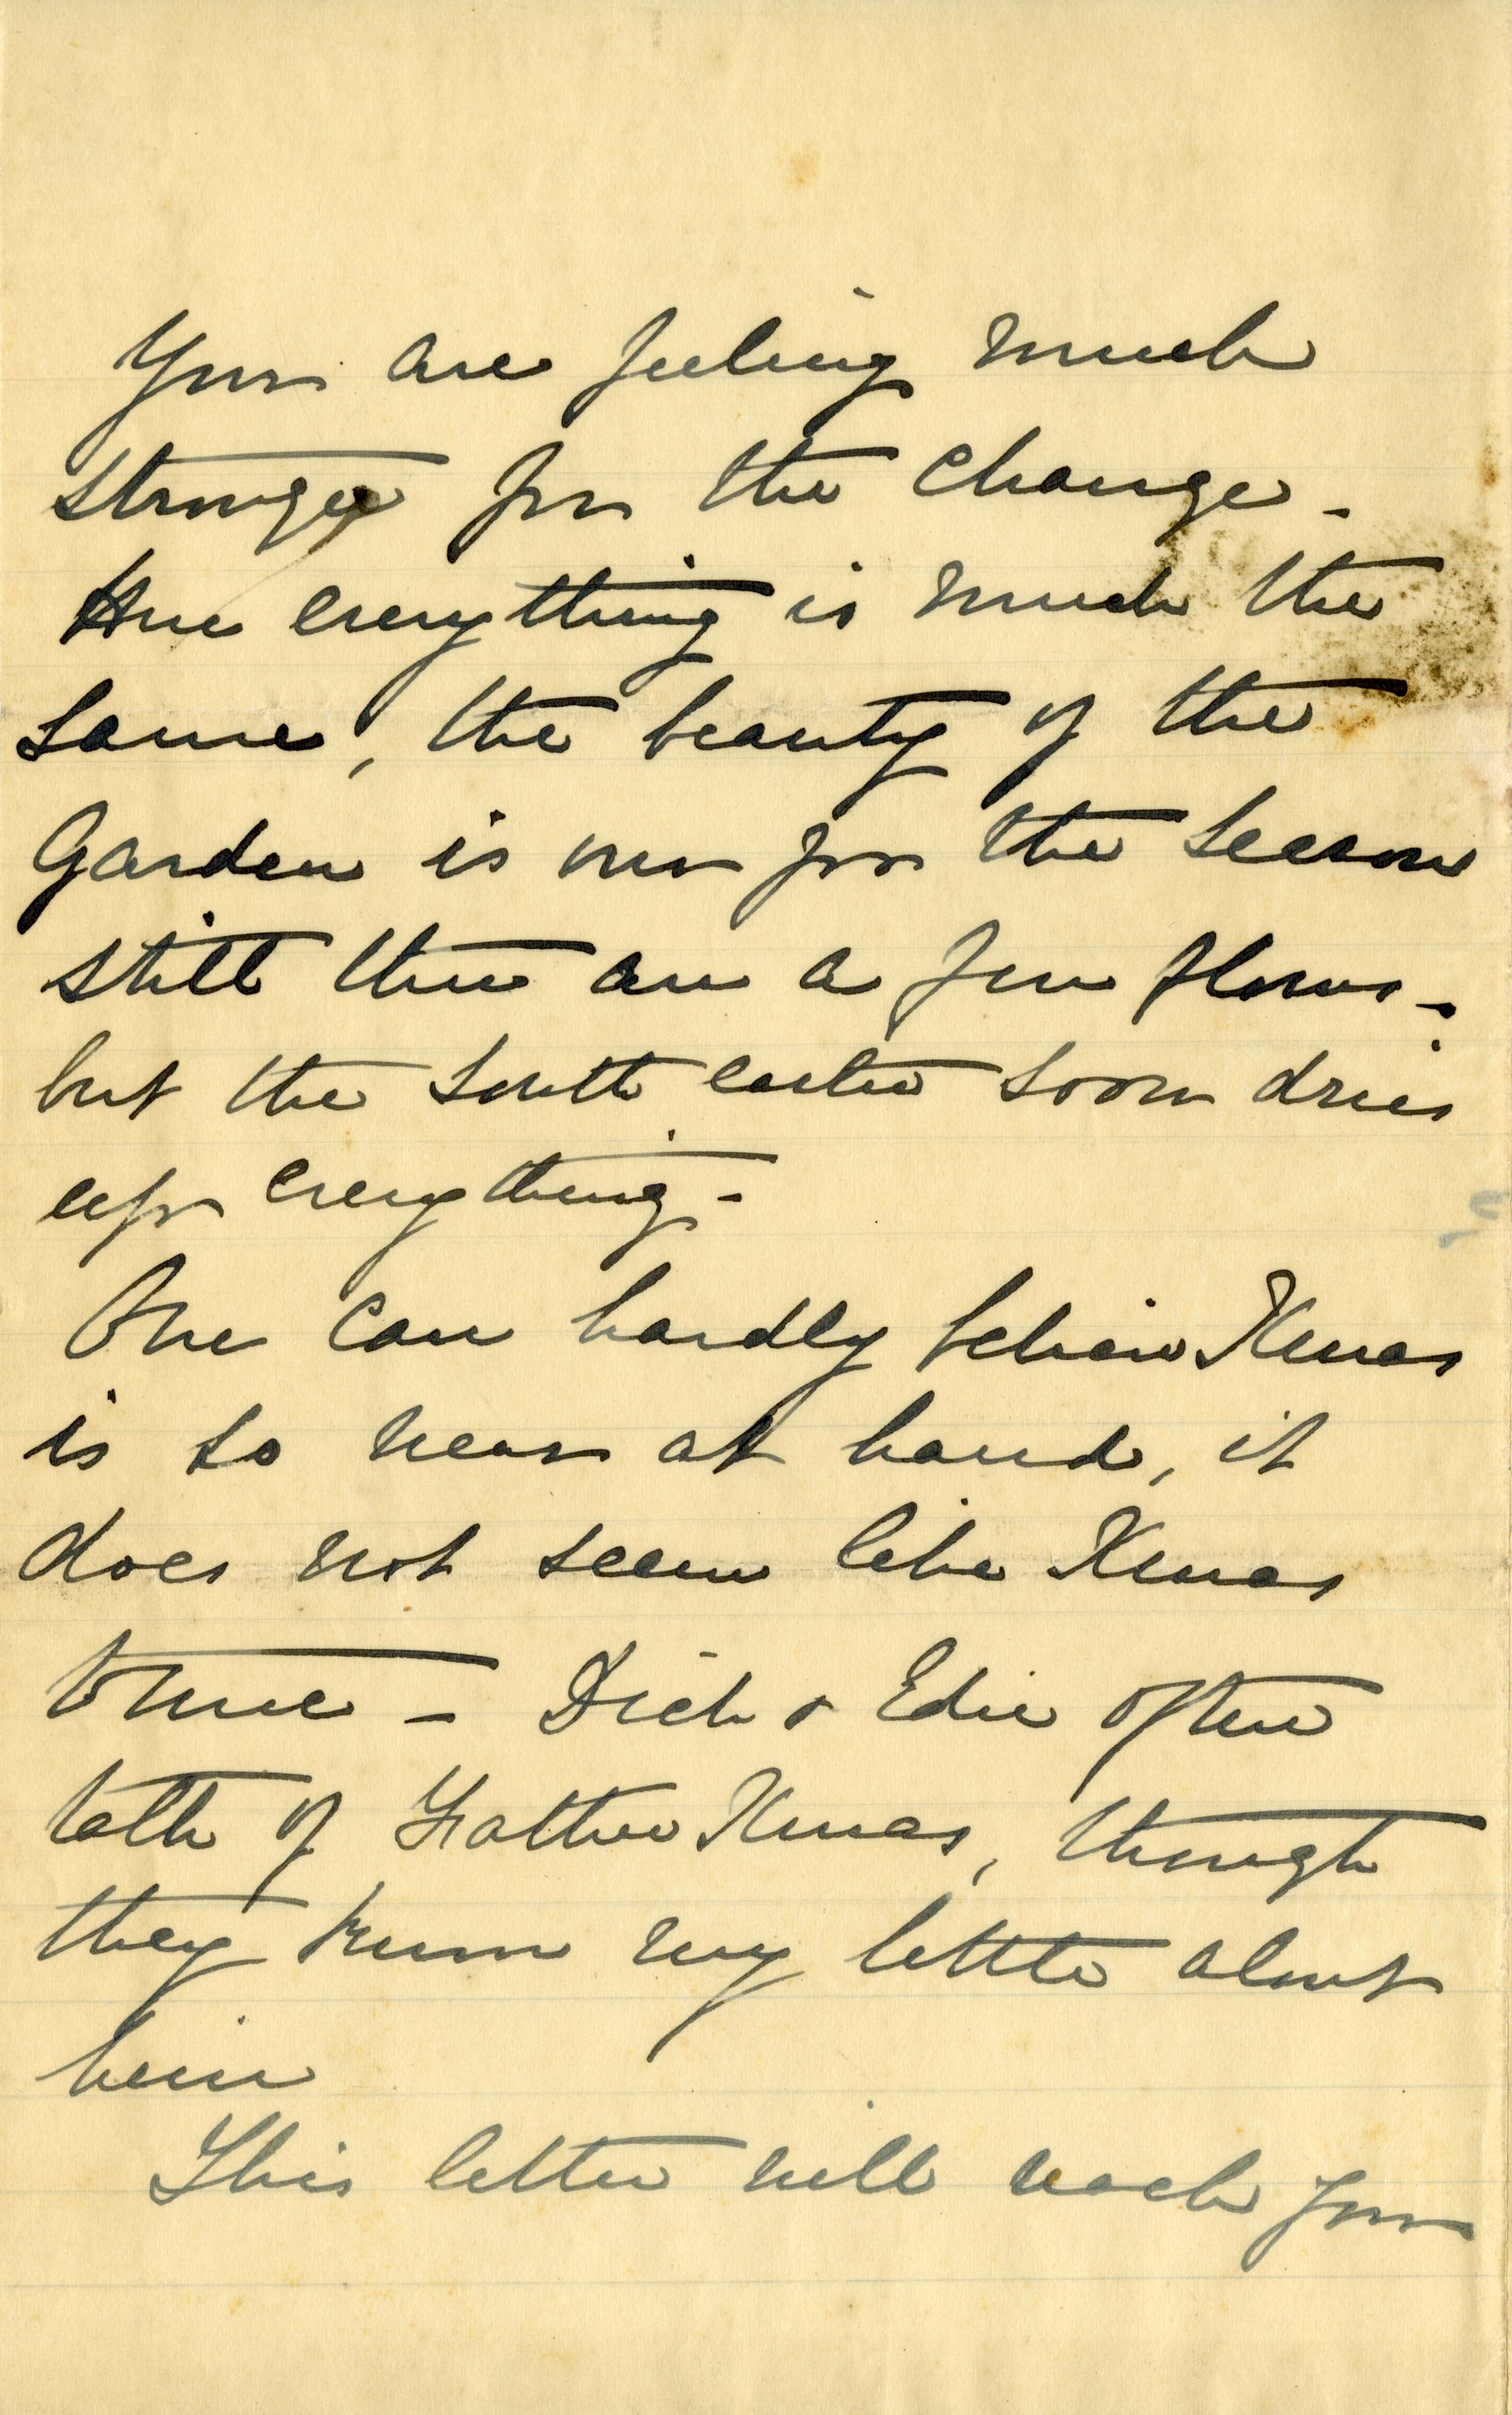 You are feeling much
stronger for the change -
Here everything is much the
same, the beauty of the
Garden is over for the season
still there are a few flowers -
but the South easter soon dries
up everything -
One can hardly believe Xmas
is so near at hand, it
does not seem like Xmas
to me - Dick & Edie often
talk of Father Xmas, though
they know very little about
him
This letter will reach you